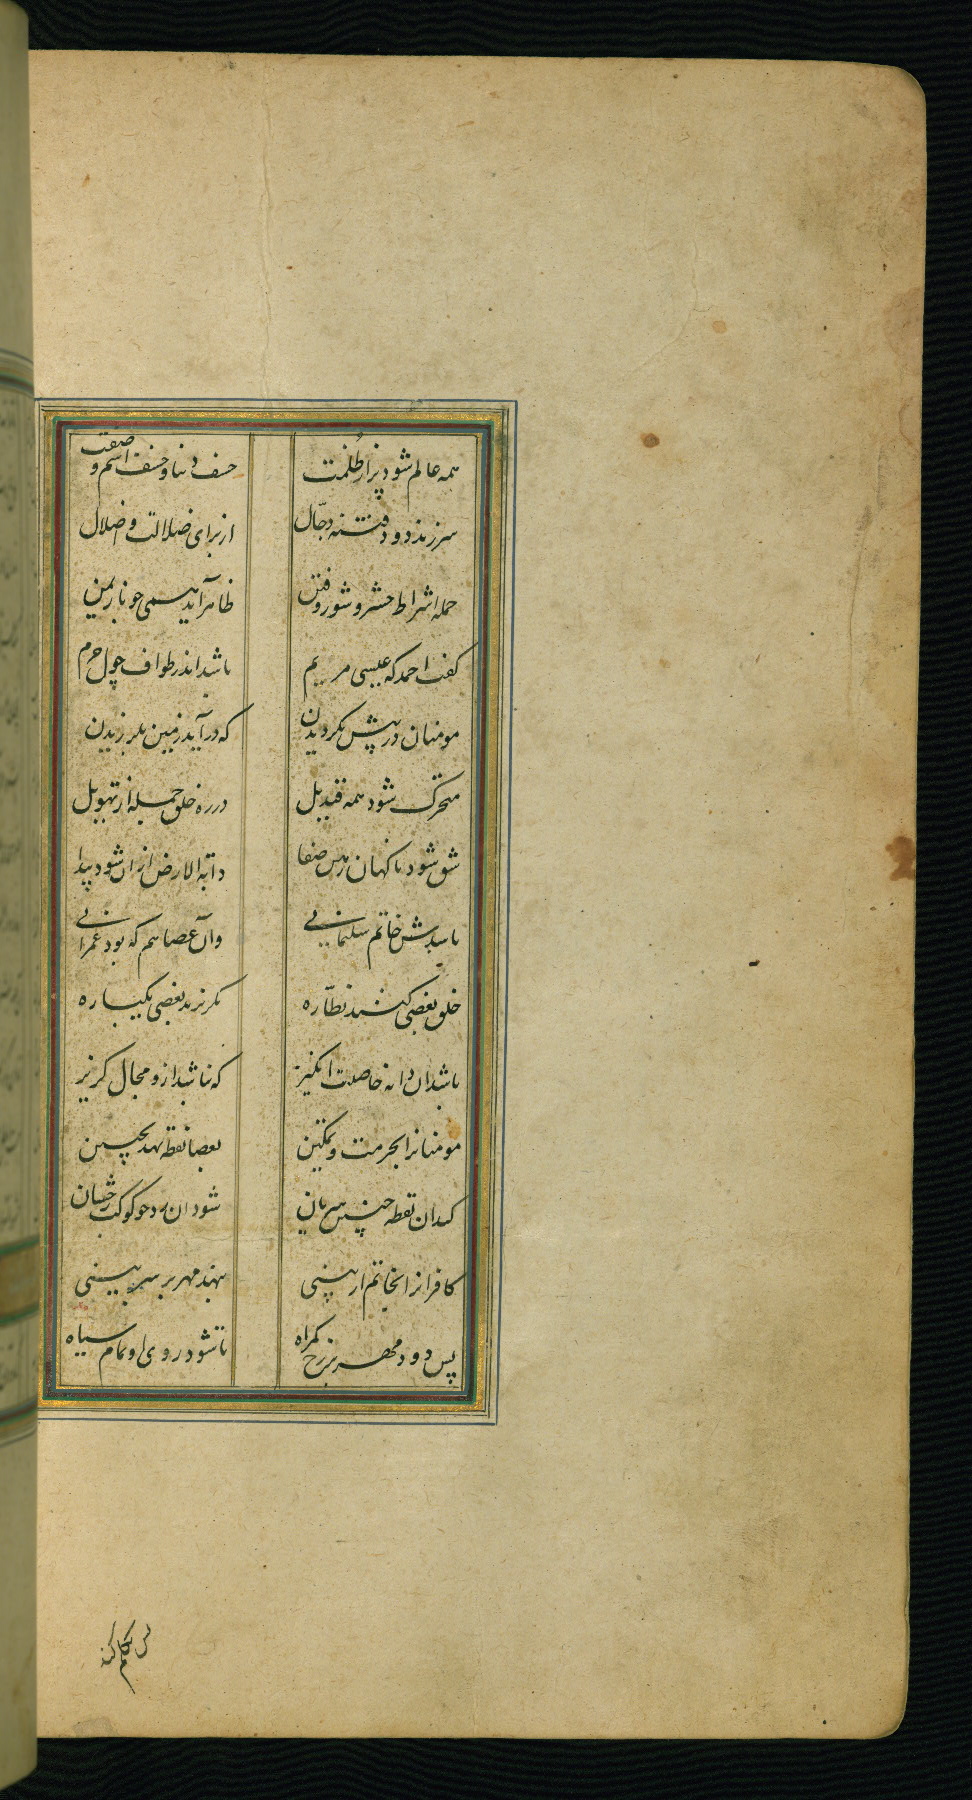 همه عالم شود پر از ظلمت خسف دنیا و خسف اسم و صفت
سرزند دود و فتنه دجّال از برای ضلالت و اضلال
جمله اشراط حشر و شور و فتن ظاهر آید همی چو نار یمن
گفت احمد که عیسی مریم باشد اندر طواف چول حرم
مومنان در پیش بگردیدن که در آید زمین بلرزیدن
متحرک شود همه قندیل در ره خلق جمله از تهویل
شق شود ناکهان زمین صفا دابة الارض از ان شود پیدا
باشدش خاتم سلیمانی وآن عصا هم که بود عمرانی
خلق بعضی کنند نظّاره بگریزند بعضی یکباره
باشد ان دابه خاصیت انگیز که نباشد ازو مجال گریز
مومنانرا بحرمت و تمکین بعصا نقطه نهد بجبین
کند ان نقطه جنبش سریان شود ان رو چو کوکب رخشان
کافرانرا بخاتم از بینی بنهد مهر بر سر بینی
پس دود مهر بر رخ گمراه تا شود روی او تمام سیاه
پس تکلم کند